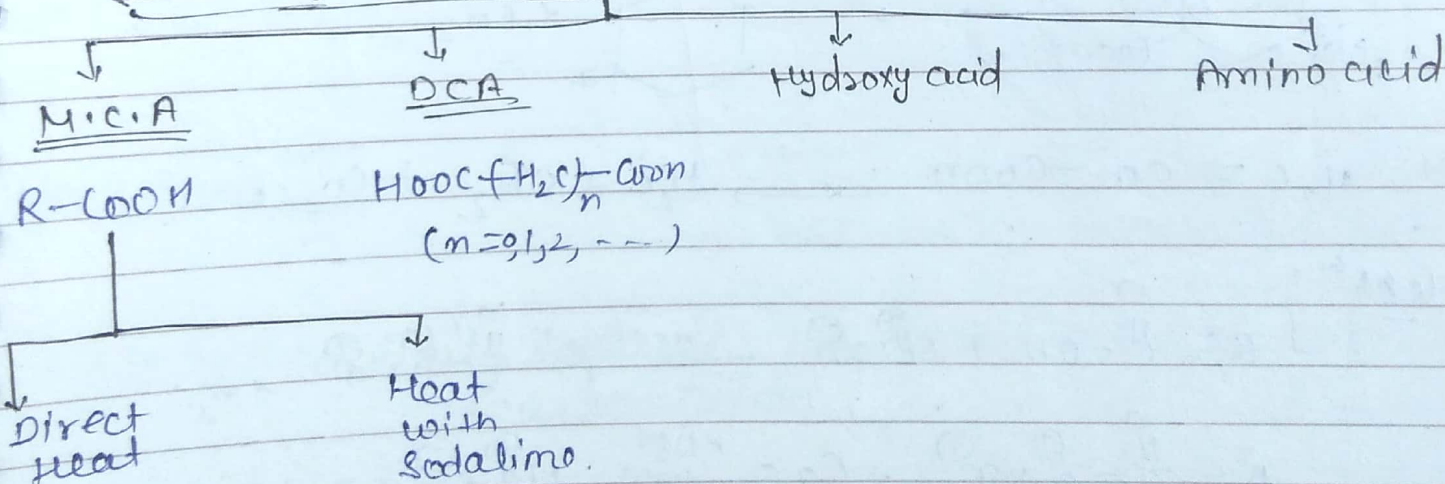 M.C.A
DCA
Hydroxy acid
Amino acid
R-COOH
HOOC-(H₂C)n-COOH
(n=0,1,2, ----)
Direct
Heat
Heat
with
Sodalime.